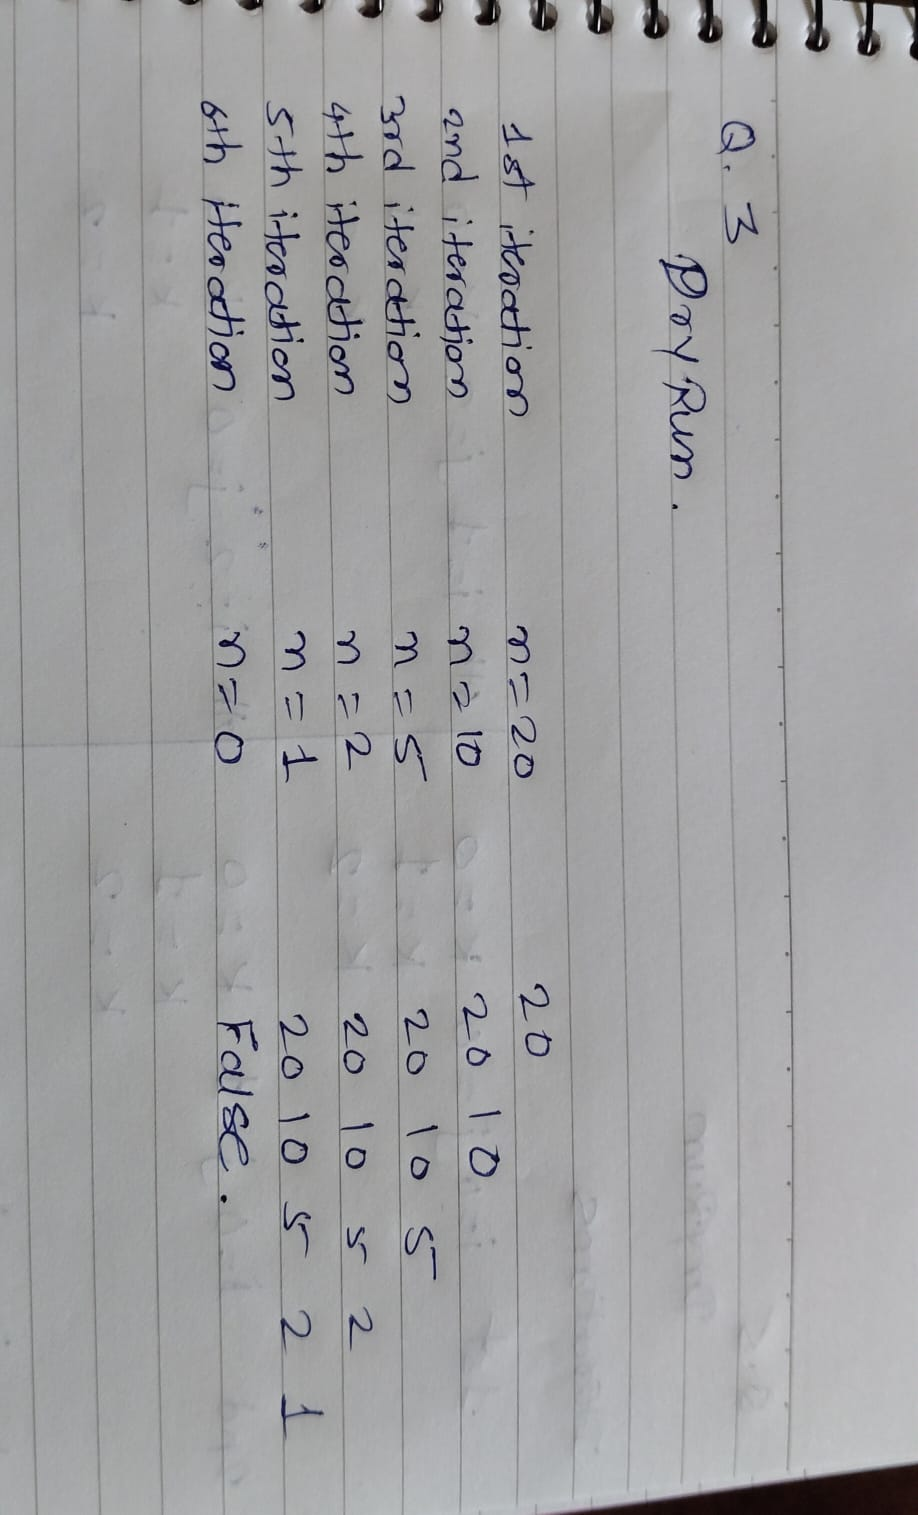 Q. 3
Dry Run.
1st iteration n=20 20
2nd iteration n=10 20 10
3rd iteration n=5 20 10 5
4th iteration n=2 20 10 5 2
5th iteration n=1 20 10 5 2 1
6th iteration n=0 False.